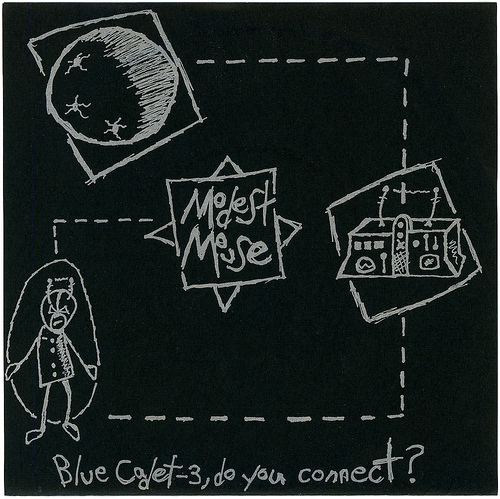 Modest
Mouse
Blue Cadet-3, do you connect?